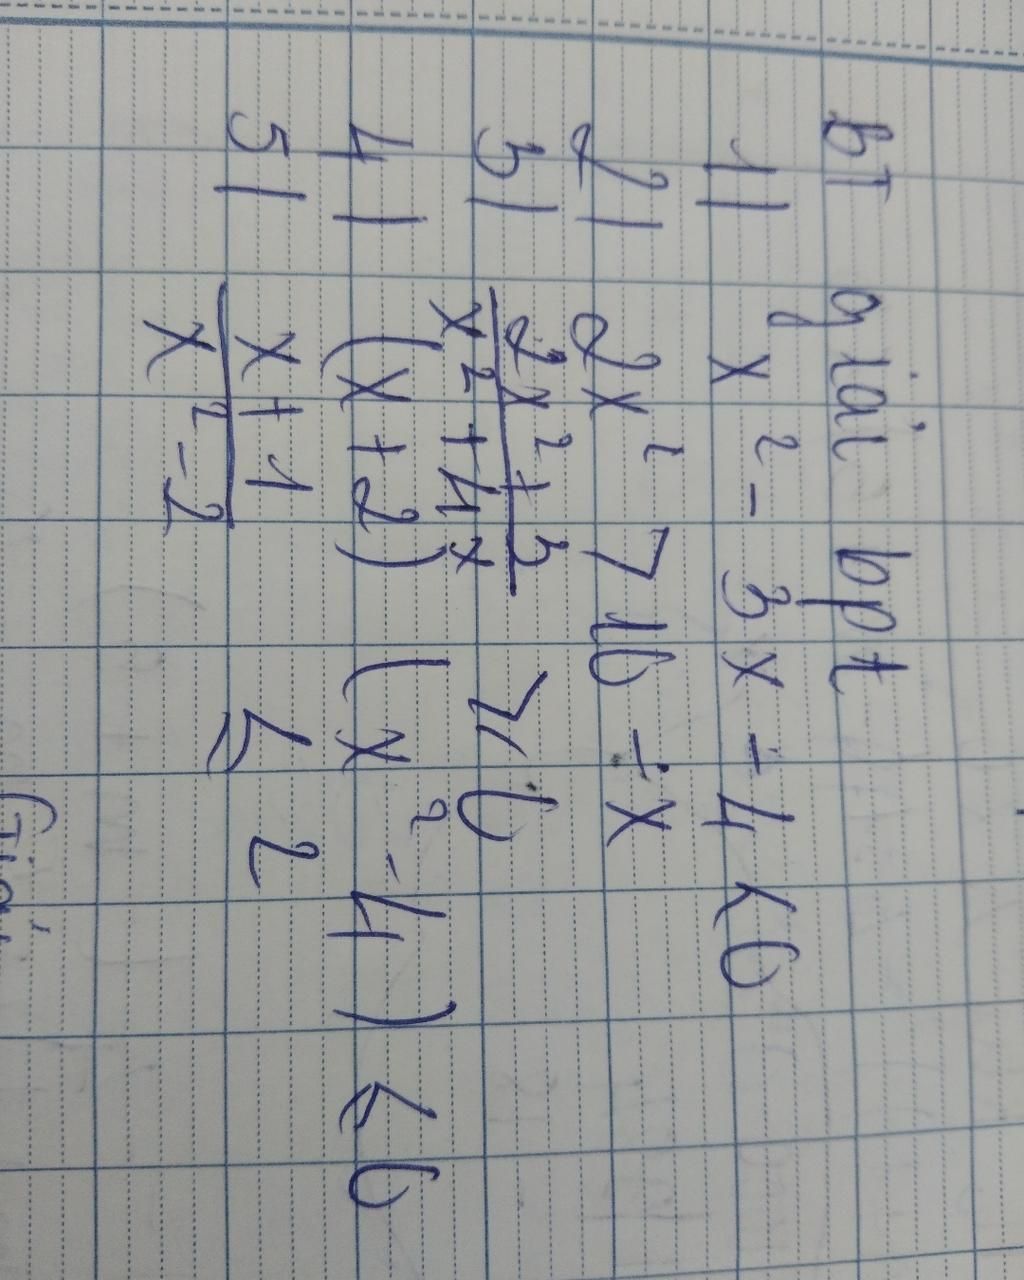 BT giải bpt
1) x² - 3x - 4 < 0
2) 2x² > 10 - x
3) \frac{2x² + 3}{x² + 4x} ≥ 0
4) (x + 2) (x² - 4) ≤ 0
5) \frac{x + 1}{x² - 2} ≤ 2